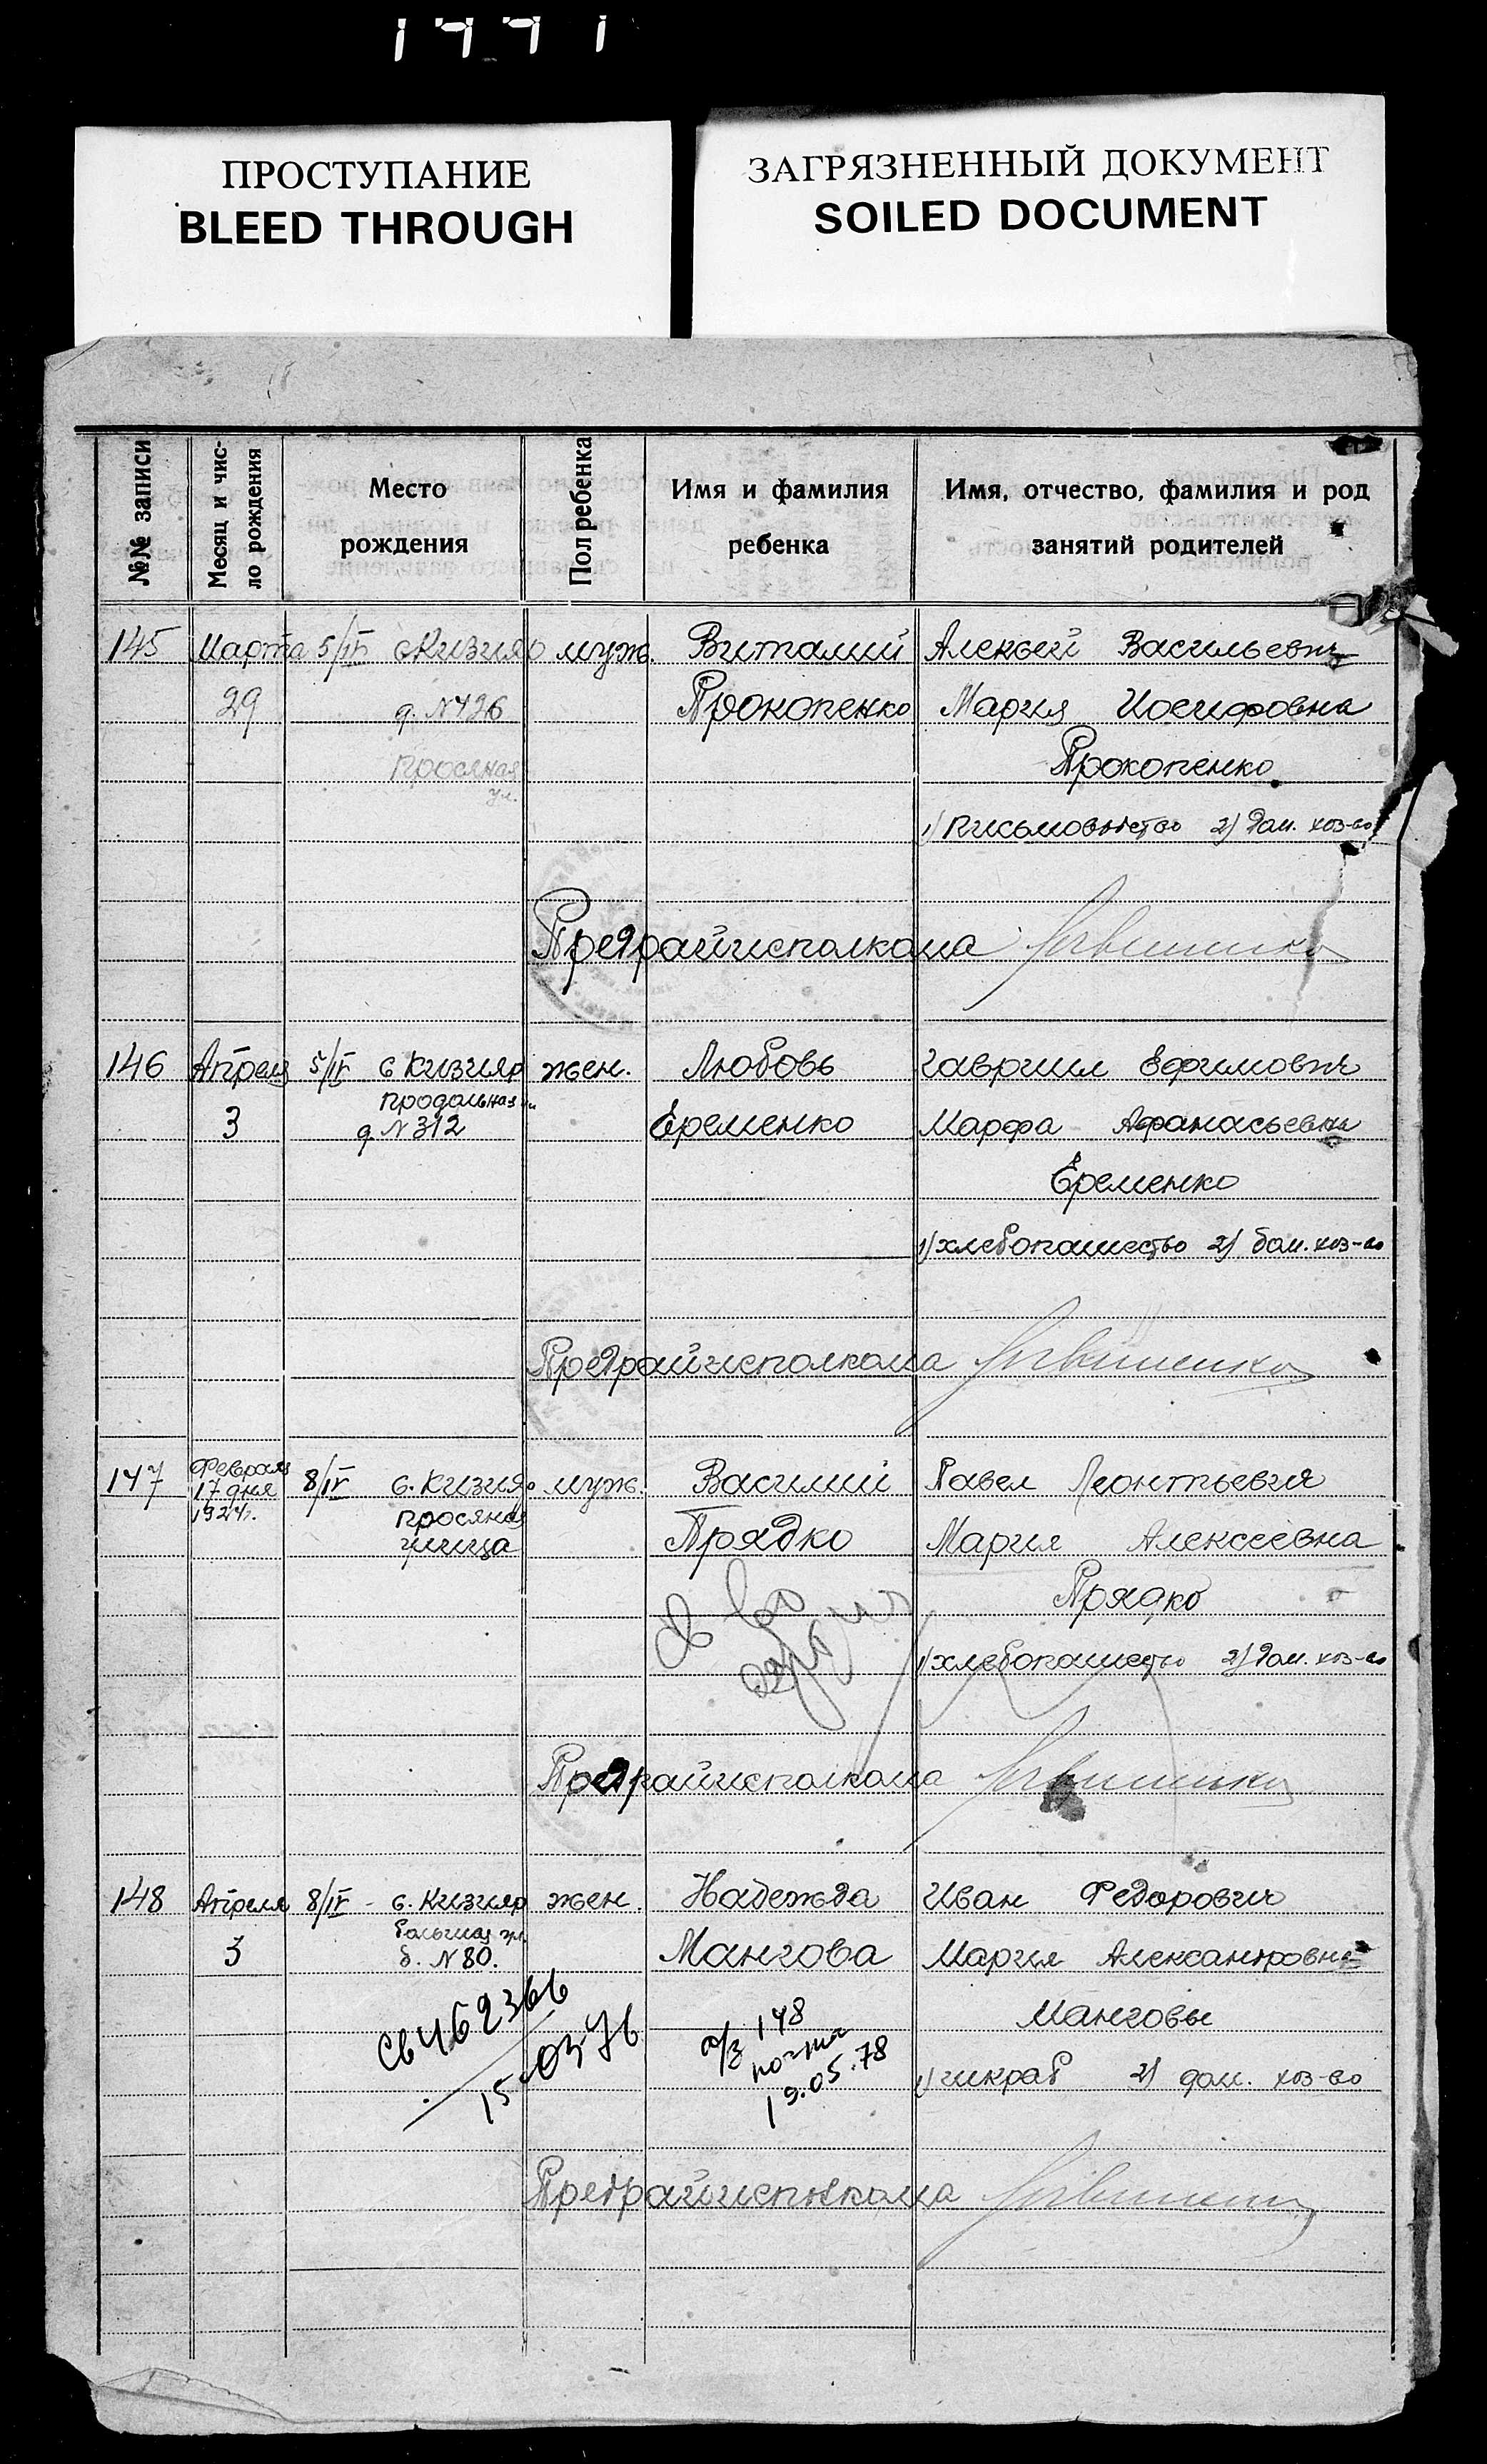 ПРОСТУПАНИЕ
BLEED THROUGH
ЗАГРЯЗНЕННЫЙ ДОКУМЕНТ
SOILED DOCUMENT
№№ записи
Месяц и чис-
ло рождения
Место
рождения
Пол ребенка
Имя и фамилия
ребенка
Имя, отчество, фамилия и род
занятий родителей
145 Марта 5/IV с Кизияр муж. Виталий Алексей Васильевич
29 д. N 426 Прокопенко Мария Иосифовна
Просяная Прокопенко
ул.
1) письмоводство 2) дом. хоз-во
Предрайисполкома
146 Апреля 5/IV с Кизияр жен. Любовь Гавриил Ефимович
Продольная ул
3 д N 312 Еременко Марфа Афанасьевна
Еременко
1) хлебопашество 2) дом. хоз-во
Предрайисполкома
147 Февраля 8/IV с. Кизияр муж. Василий Павел Леонтьевич
17 дня
1924г. просяная Прядко Мария Алексеевна
улица
Прядко
1) хлебопашество 2) дом. хоз-во
Предрайисполкома
148 Апреля 8/IV - с. Кизияр жен. Надежда Иван Федорович
3 д. N 80. Мангова Мария Александровна
Манговы
Св 462366
15-03-76
а/з 148
19.05.78
1) шкраб 2) дом. хоз-во
Предрайисполкома